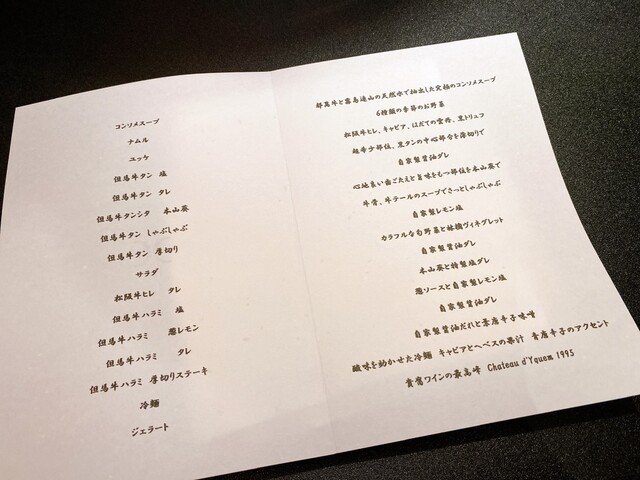 コンソメスープ
ナムル
ユッケ
但馬牛タン 塩
但馬牛タン タレ
但馬牛タンシタ 本山葵
但馬牛タン しゃぶしゃぶ
但馬牛タン 厚切り
サラダ
松阪牛ヒレ タレ
但馬牛ハラミ 塩
但馬牛ハラミ 葱レモン
但馬牛ハラミ タレ
但馬牛ハラミ 厚切りステーキ
冷麺
ジェラート
都萬牛と霧島連山の天然水で抽出した究極のコンソメスープ
6種類の季節のお野菜
松阪牛ヒレ、キャビア、はだての雲丹、黒トリュフ
超希少部位、黒タンの中心部台を薄切りで
自家製醤油ダレ
心地良い歯ごたえと旨味をもつ部位を本山葵で
牛骨、牛テールのスープでさっとしゃぶしゃぶ
自家製レモン塩
カラフルな旬野菜と林檎ヴィネグレット
自家製醤油ダレ
本山葵と特製塩ダレ
葱ソースと自家製レモン塩
自家製醤油ダレ
自家製醤油だれと葉唐辛子味噌
酸味を効かせた冷麺 キャビアとへベスの果汁 青唐辛子のアクセント
貴腐ワインの最高峰 Chateau d'Yquem 1995